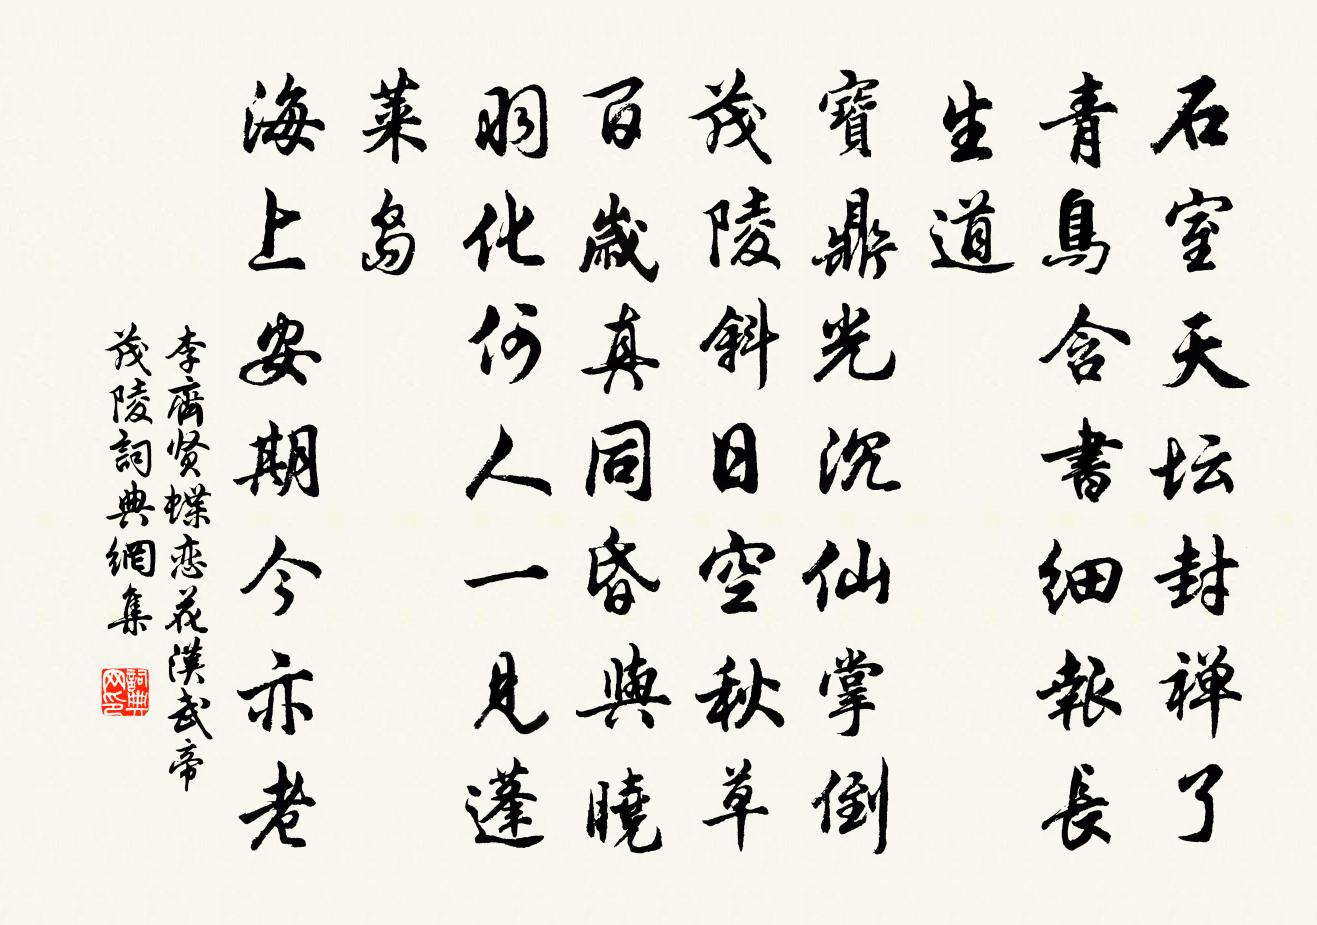 石室天坛封禅了
青鳥含書細報長
生道
寶鼎光沉仙掌倒
茂陵斜日空秋草
百歲真同昏與曉
羽化何人一見蓬
莱岛
海上安期今亦老
李齊贤蝶恋花漢武帝
茂陵詞典網集
詞典
网印